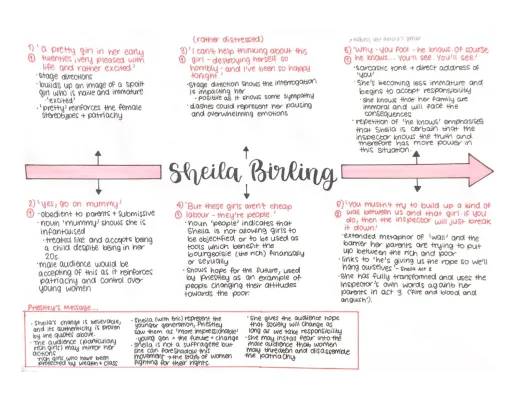 1) 'a pretty girl in her early
twenties, very pleased with
life and rather excited'
- Stage directions
- builds up an image of a spoilt
girl who is naive and immature
'excited'
- 'pretty' reinforces the female
stereotypes + patriarchy
(rather distressed)
3) 'I can't help thinking about this
girl - destroying herself so
horribly - and I've been so happy
tonight.'
- Stage direction shows the interrogation
is impacting her
- possible all, it shows some sympathy
- dashes could represent her pausing
and overwhelming emotions
5) 'Why - you fool - he knows. Of course
he knows... You'll see. You'll see.'
- sarcastic tone + direct address of
'you'
- She's becoming less immature and
begins to accept responsibility
- she knows that her family are
immoral and will face the
consequences
- repetition of 'he knows' emphasises
that Sheila is certain that the
inspector knows the truth and
therefore has more power in
this situation.
Sheila Birling
2) 'yes, go on mummy'
- obedient to parents + submissive
- noun 'mummy' shows she is
infantilised
- treated like and accepts being
a child despite being in her
20s.
- male audience would be
accepting of this as it reinforces
patriarchy and control over
young women
4) 'But these girls aren't cheap
labour - they're people.'
- noun 'people' indicates that
Sheila is not allowing girls to
be objectified or to be used as
tools which benefit the
bourgeoisie (the rich) financially
or sexually
- Shows hope for the future, used
by Priestley as an example of
people changing their attitudes
towards the poor.
6) 'You mustn't try to build up a kind of
wall between us and that girl. If you
do, then the inspector will just break
it down.'
- extended metaphor of 'wall' and the
barrier her parents are trying to put
up between the rich and poor
- links to 'he's giving us the rope so we'll
hang ourselves' - Sheila Act 2
- She has fully transformed and uses the
inspector's own words against her
parents in act 3 (fire and blood and
anguish).
Priestley's Message...
- Sheila's change is believable,
and its authenticity is proven
by the quotes above.
- The audience (particularly
rich girls) may mirror her
actions
- rich girls who have been
protected by wealth + class
- Sheila (with Eric) represent the
younger generation, Priestley
saw them as 'more impressionable'
- young gen → the future + change
- Sheila is not a suffragette but
she can foreshadow this
movement → the start of women
fighting for their rights.
- She gives the audience hope
that society will change as
long as we take responsibility
- She may instil fear into the
male audience that women
may threaten and disassemble
the patriarchy